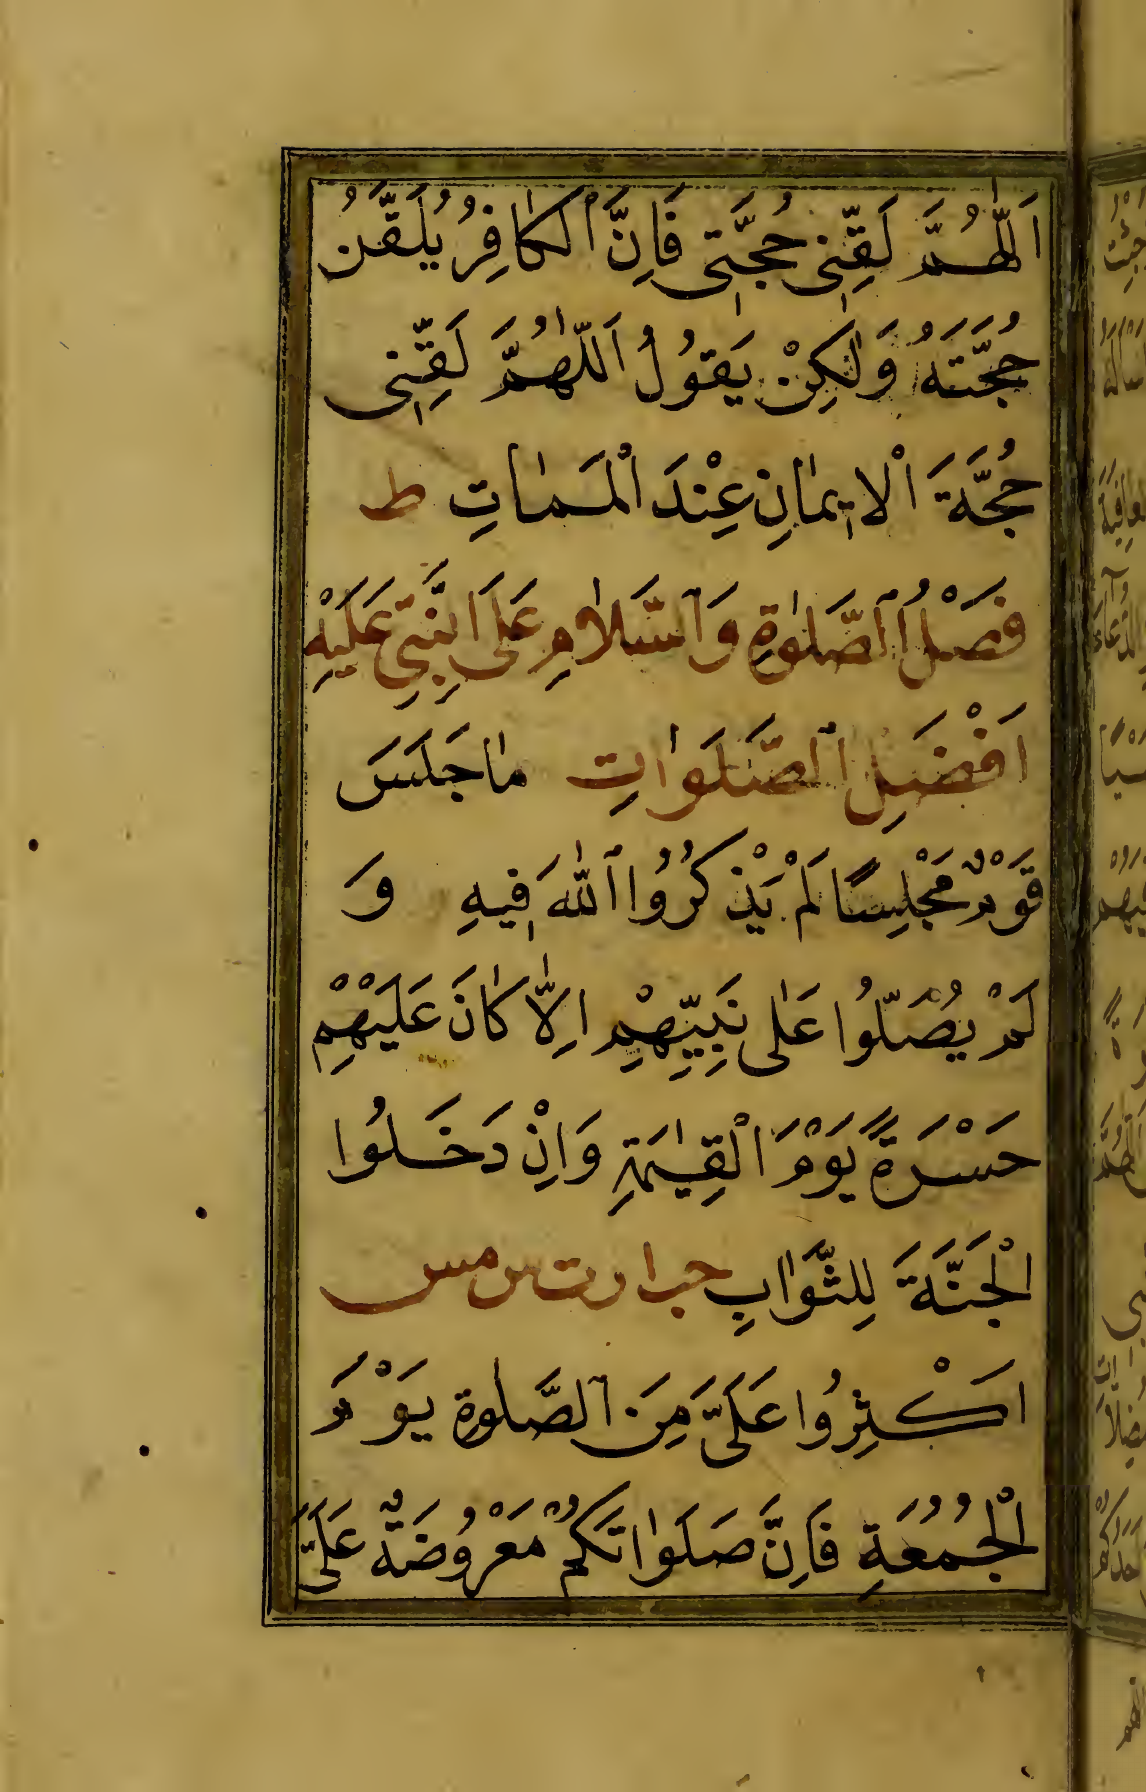 اَللّٰهُمَّ لَقِّنِي حُجَّتِي فَاِنَّ الْكَافِرُ يُلَقَّنُ
حُجَّتَهُ وَلٰكِنْ يَقُولُ اَللّٰهُمَّ لَقِّنِي
حُجَّةَ الْاِيمٰانِ عِنْدَ الْمَمٰاتِ ط
فَضْلُ الصَّلٰوةِ وَالسَّلٰامِ عَلَى النَّبِيِّ عَلَيْهِ
اَفْضَلِ الصَّلَوٰاتِ مٰا جَلَسَ
قَوْمٌ مَجْلِسًا لَمْ يَذْكُرُوا اللّٰهَ فِيهِ وَ
لَمْ يُصَلُّوا عَلٰى نَبِيِّهِمْ اِلّٰا كٰانَ عَلَيْهِمْ
حَسْرَةً يَوْمَ الْقِيٰمَةِ وَاِنْ دَخَلُوا
الْجَنَّةَ لِلثَّوَابِ حب ا د ت س مس
اَكْثِرُوا عَلَيَّ مِنَ الصَّلٰوةِ يَوْمَ
الْجُمُعَةِ فَاِنَّ صَلَوٰاتَكُمْ مَعْرُوضَةٌ عَلَيَّ